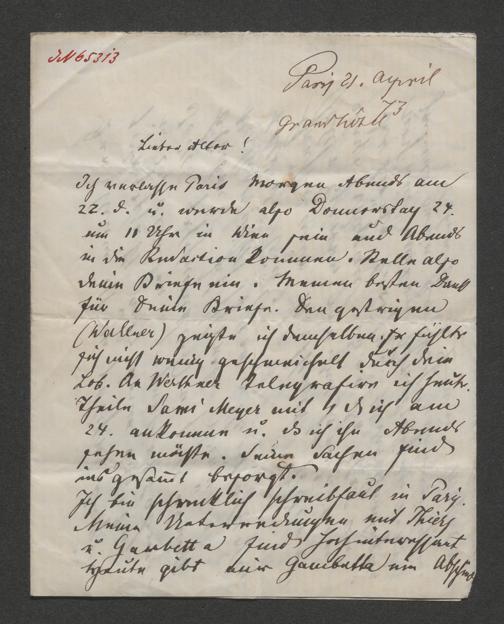 JN 65313
Paris 21. April
Grand hôtel 73
Lieber Alter!
Ich verlasse Paris Morgen Abends am
22. d. u. werde also Donnerstag 24.
um 11 Uhr in Wien sein und Abends
in die Redaction kommen. Stelle also
deine Briefe ein. Meinen besten Dank
für Deine Briefe. Den gestrigen
zeigte ich demselben. Er fühlte
sich nicht wenig geschmeichelt durch dein
Lob. An telegrafire ich heute.
Theile Sami Meyer mit, daß ich am
24. ankomme u. daß ich ihn Abends
sehen möchte. Seine Sachen sind
insgesammt besorgt.
Ich bin schrecklich schreibfaul in Paris.
Meine Unterredungen mit Thiers
u. Gambetta sind hochinteressant
Heute gibt mir Gambetta ein